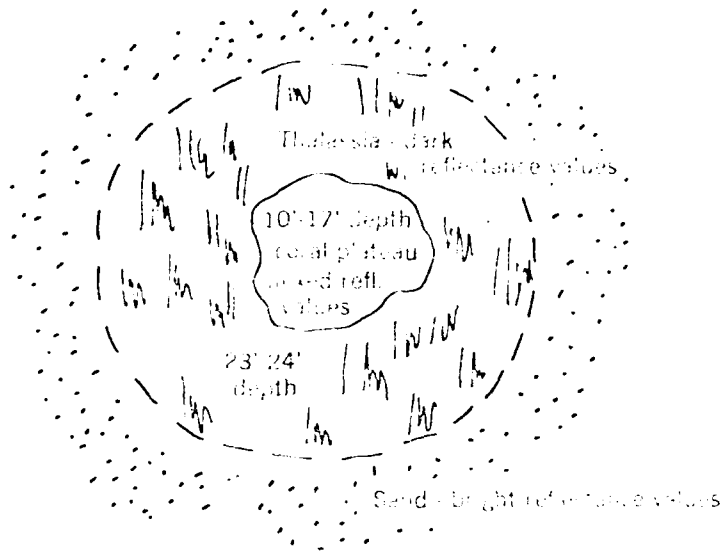 Thalassia - dark
reflectance values
10'-17' depth
coral plateau
mixed refl.
values
23'-24'
depth
Sand - bright reflectance values